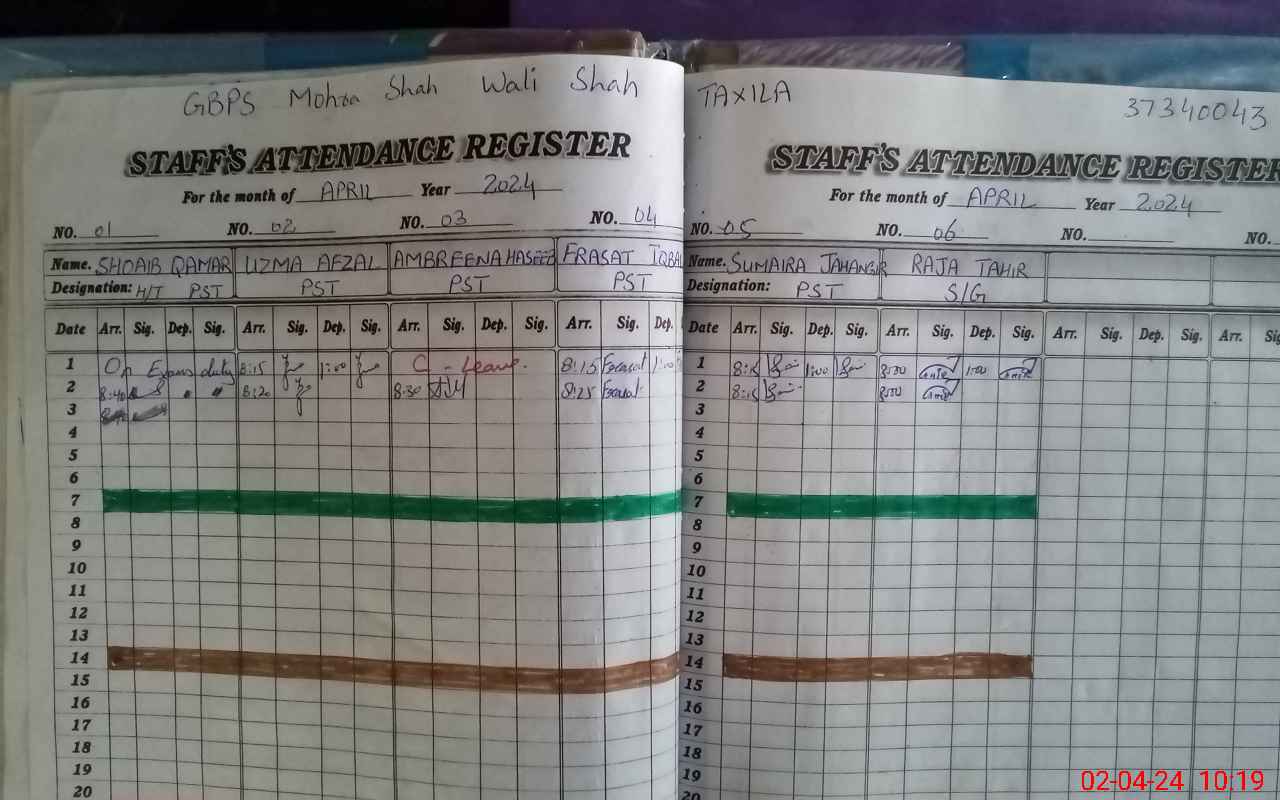 GBPS Mohra Shah Wali Shah
STAFF'S ATTENDANCE REGISTER
For the month of APRIL Year 2024
NO. 01 NO. 02 NO. 03 NO. 04
Name. SHOAIB QAMAR UZMA AFZAL AMBREENA HASEEB FRASAT IQBAL
Designation: H/T PST PST PST PST
Date Arr. Sig. Dep. Sig. Arr. Sig. Dep. Sig. Arr. Sig. Dep. Sig. Arr. Sig. Dep.
1 On Exams duty 8:15 1:00 C - Leave. 8:15 Farasat 1:00
2 8:40 8:20 8:30 8:25 Farasat
3
4
5
6
7
8
9
10
11
12
13
14
15
16
17
18
19
20
TAXILA 37340043
STAFF'S ATTENDANCE REGISTER
For the month of APRIL Year 2024
NO. 05 NO. 06 NO. NO.
Name. SUMAIRA JAHANGIR RAJA TAHIR
Designation: PST S/G
Date Arr. Sig. Dep. Sig. Arr. Sig. Dep. Sig. Arr. Sig. Dep. Sig. Arr. Sig.
1 8:15 1:00 8:00 1:00
2 8:15 8:00
3
4
5
6
7
8
9
10
11
12
13
14
15
16
17
18
19
20
02-04-24 10:19